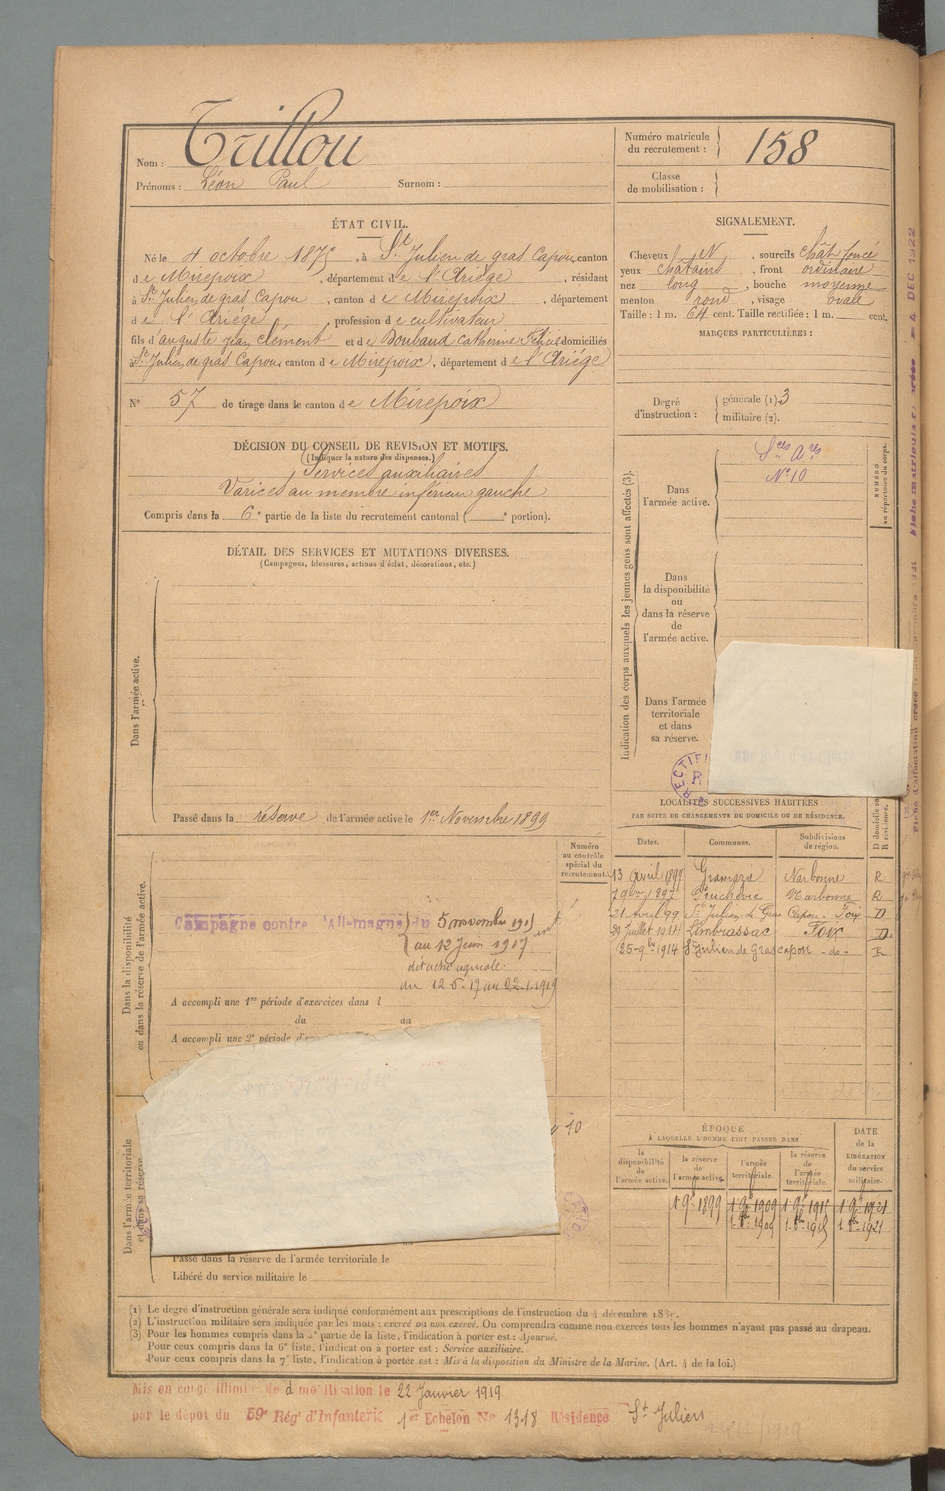 Nom : Trillou
Prénoms : Léon Paul Surnom :
Numéro matricule du recrutement : 158
Classe de mobilisation :
ÉTAT CIVIL.
Né le 4 octobre 1875, à St Julien de gras Capou, canton
de Mirepoix, département de l'Ariége, résidant
à St Julien de gras Capou, canton de Mirepoix, département
de l'Ariége, profession de cultivateur
fils d'auguste jean clément et de Boubaud Catherine domiciliés
St Julien de gras Capou canton de Mirepoix, département de l'Ariége
N° 57 de tirage dans le canton de Mirepoix
SIGNALEMENT.
Cheveux N, sourcils chât foncé
yeux châtains, front ordinaire
nez long, bouche moyenne
menton rond, visage ovale
Taille : 1 m. 64 cent. Taille rectifiée : 1 m. cent.
MARQUES PARTICULIÈRES :
Degré d'instruction : générale (1). 3
militaire (2).
DÉCISION DU CONSEIL DE REVISION ET MOTIFS.
(Indiquer la nature des dispenses.)
Services auxiliaires
Varices au membre inférieur gauche
Compris dans la 6e partie de la liste du recrutement cantonal ( e portion).
Indication des corps auxquels les jeunes gens sont affectés (3).
NUMÉRO au répertoire du corps.
Dans l'armée active.
Sces Ares
N° 10
Dans la disponibilité ou dans la réserve de l'armée active.
Dans l'armée territoriale et dans sa réserve.
DÉTAIL DES SERVICES ET MUTATIONS DIVERSES.
(Campagnes, blessures, actions d'éclat, décorations, etc.)
Dans l'armée active.
Passé dans la réserve de l'armée active le 1er Novembre 1899
Dans la disponibilité ou dans la réserve de l'armée active.
Numéro au contrôle spécial du recrutement
Campagne contre l'Allemagne du 5 novembre 1915
au 12 Juin 1917
détaché agricole
du 12-6-17 au 22-1-1919
A accompli une 1re période d'exercices dans l
du au
A accompli une 2e période d'
LOCALITÉS SUCCESSIVES HABITÉES
PAR SUITE DE CHANGEMENTS DE DOMICILE OU DE RÉSIDENCE.
Dates. Communes. Subdivisions de région. D domicile ou R résidence.
13 avril 1897 Gramaze Narbonne R
7 9bre 1897 Narbonne R
21 Avril 99 St Julien de Gras Capou - Foix D
29 Juillet 1911 Limbrassac Foix D.
25-9bre 1914 St Julien de Gras capou -do- R
Dans l'armée territoriale et dans sa réserve
10
Passé dans la réserve de l'armée territoriale le
Libéré du service militaire le
ÉPOQUE
À LAQUELLE L'HOMME DOIT PASSER DANS
la disponibilité de l'armée active. la réserve de l'armée active. l'armée territoriale. la réserve de l'armée territoriale.
DATE de la LIBÉRATION du service militaire.
1 9e 1899 1 9e 1909 1 9e 1915 1 9e 1921
1 8bre 1909 1 8bre 1915 1 8bre 1921
(1) Le degré d'instruction générale sera indiqué conformément aux prescriptions de l'instruction du 4 décembre 1889.
(2) L'instruction militaire sera indiquée par les mots : exercé ou non exercé. On comprendra comme non exercés tous les hommes n'ayant pas passé au drapeau.
(3) Pour les hommes compris dans la 5e partie de la liste, l'indication à porter est : Ajourné.
Pour ceux compris dans la 6e liste, l'indication à porter est : Service auxiliaire.
Pour ceux compris dans la 7e liste, l'indication à porter est : Mis à la disposition du Ministre de la Marine. (Art. 4 de la loi.)
Mis en congé illimité de démobilisation le 22 Janvier 1919
par le dépot du 59e Régt d'Infanterie 1er Echelon N° 1318 Résidence St Julien